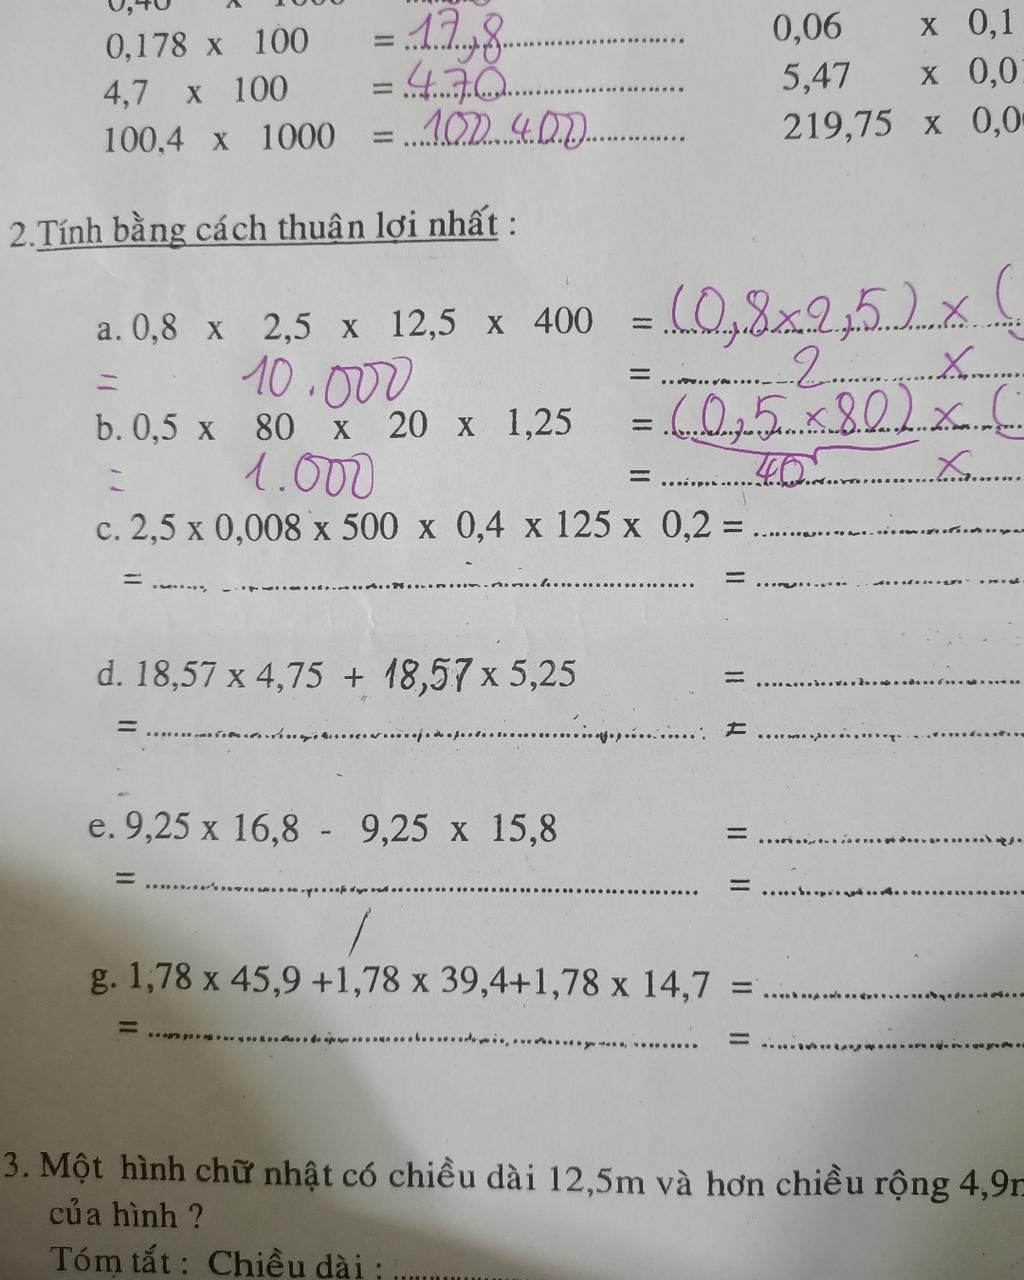 0,178 x 100 = 17,8 0,06 x 0,1
4,7 x 100 = 470 5,47 x 0,0
100,4 x 1000 = 100.400 219,75 x 0,0
2.Tính bằng cách thuận lợi nhất :
a. 0,8 x 2,5 x 12,5 x 400 = (0,8x2,5) x (
= 10.000 = 2 x
b. 0,5 x 80 x 20 x 1,25 = (0,5 x80) x (
= 1.000 = 40 x
c. 2,5 x 0,008 x 500 x 0,4 x 125 x 0,2 =
= =
d. 18,57 x 4,75 + 18,57 x 5,25 =
= =
e. 9,25 x 16,8 - 9,25 x 15,8 =
= =
g. 1,78 x 45,9 +1,78 x 39,4+1,78 x 14,7 =
= =
3. Một hình chữ nhật có chiều dài 12,5m và hơn chiều rộng 4,9
của hình ?
Tóm tắt : Chiều dài :